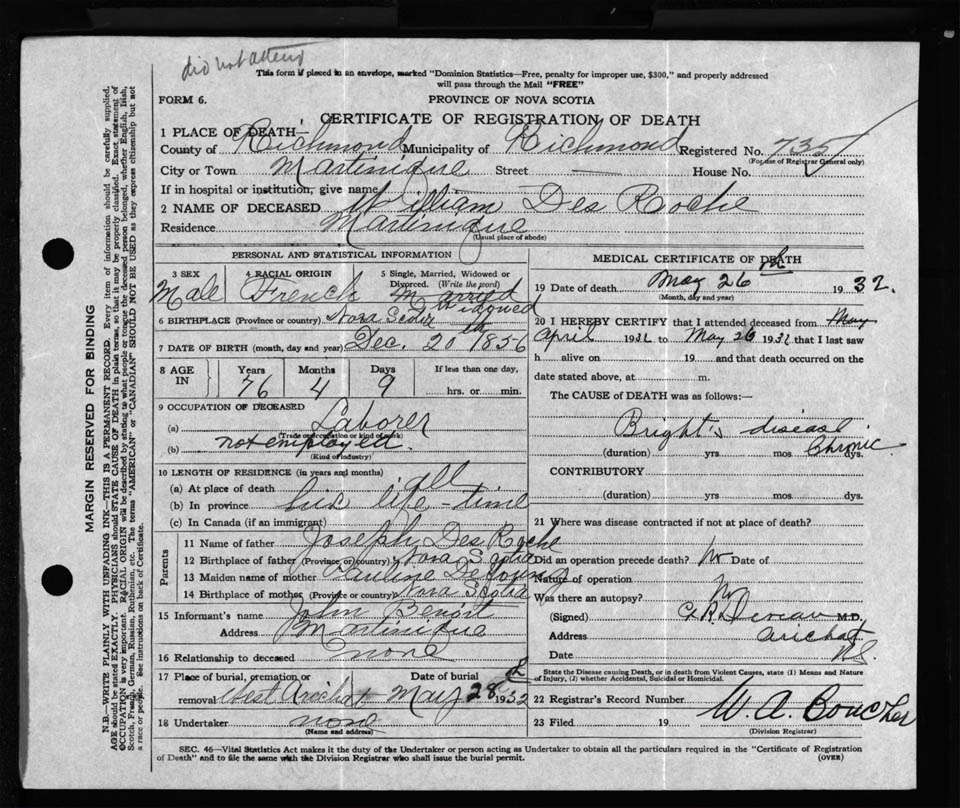 did not attend
This form if placed in an envelope, marked "Dominion Statistics—Free, penalty for improper use, $300," and properly addressed
will pass through the Mail "FREE"
FORM 6.
PROVINCE OF NOVA SCOTIA
CERTIFICATE OF REGISTRATION OF DEATH
1 PLACE OF DEATH—
County of Richmond Municipality of Richmond Registered No. 735
(For use of Registrar General only)
City or Town Martinique Street — House No.
If in hospital or institution, give name
2 NAME OF DECEASED William Des Roche
Residence Martinique
(Usual place of abode)
PERSONAL AND STATISTICAL INFORMATION
3 SEX Male
4 RACIAL ORIGIN French
5 Single, Married, Widowed or Divorced. (Write the word) Married
6 BIRTHPLACE (Province or country) Nova Scotia
7 DATE OF BIRTH (month, day and year) Dec. 20th 1856
8 AGE IN
Years 76
Months 4
Days 9
If less than one day,
hrs. or min.
9 OCCUPATION OF DECEASED
(a) Laborer
(Trade or occupation or kind of work)
(b) not employed.
(Kind of industry)
10 LENGTH OF RESIDENCE (in years and months)
(a) At place of death all
(b) In province his life-time
(c) In Canada (if an immigrant)
Parents
11 Name of father Joseph Des Roche
12 Birthplace of father (Province or country) Nova Scotia
13 Maiden name of mother Pauline
14 Birthplace of mother (Province or country) Nova Scotia
15 Informant's name John Benoit
Address Martinique
16 Relationship to deceased none
17 Place of burial, cremation or removal West Arichat
Date of burial May 28th 1932
18 Undertaker none
(Name and address)
MEDICAL CERTIFICATE OF DEATH
19 Date of death May 26th 1932.
(Month, day and year)
20 I HEREBY CERTIFY that I attended deceased from May
April 1932 to May 26 1932 that I last saw
h alive on 19 and that death occurred on the
date stated above, at m.
The CAUSE of DEATH was as follows:—
Bright's disease
Chronic
(duration) yrs mos dys.
CONTRIBUTORY
(duration) yrs mos dys.
21 Where was disease contracted if not at place of death?
Did an operation precede death? No Date of
Nature of operation
Was there an autopsy? No
(Signed) M.D.
Address Arichat
N.S.
Date
State the Disease causing Death, or in death from Violent Causes, state (1) Means and Nature
of Injury, (2) whether Accidental, Suicidal or Homicidal.
22 Registrar's Record Number
23 Filed 19 W. A. Boucher
(Division Registrar)
SEC. 46—Vital Statistics Act makes it the duty of the Undertaker or person acting as Undertaker to obtain all the particulars required in the "Certificate of Registration
of Death" and to file the same with the Division Registrar who shall issue the burial permit.
(OVER)
MARGIN RESERVED FOR BINDING
N.B.—WRITE PLAINLY WITH UNFADING INK—THIS IS A PERMANENT RECORD. Every item of information should be carefully supplied.
AGE should be stated EXACTLY. PHYSICIANS should STATE CAUSE OF DEATH in plain terms, so that it may be properly classified. Exact statement of
OCCUPATION is very important. RACIAL ORIGIN will be described by stating to what people or tongue the deceased person belonged, whether English, Irish,
Scotch, French, German, Russian, Ruthenian, etc. The terms "AMERICAN" or "CANADIAN" SHOULD NOT BE USED as they express citizenship but not
a race or people. See instructions on back of Certificate.